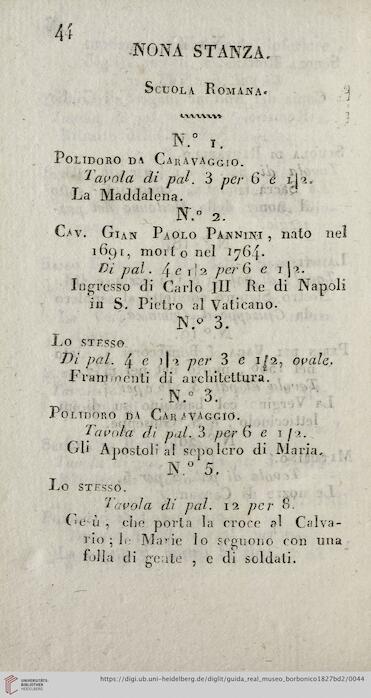 44
NONA STANZA.
SCUOLA ROMANA.
N.° 1.
POLIDORO DA CARAVAGGIO.
Tavola di pal. 3 per 6 e 1|2.
La Maddalena.
N.° 2.
CAV. GIAN PAOLO PANNINI, nato nel
1691, morto nel 1764.
Di pal. 4 e 1|2 per 6 e 1|2.
Ingresso di Carlo III Re di Napoli
in S. Pietro al Vaticano.
N.° 3.
LO STESSO
Di pal. 4 e 1|2 per 3 e 1|2, ovale.
Frammenti di architettura.
N.° 3.
POLIDORO DA CARAVAGGIO.
Tavola di pal. 3 per 6 e 1|2.
Gli Apostoli al sepolcro di Maria.
N.° 5.
LO STESSO.
Tavola di pal. 12 per 8.
Gesù, che porta la croce al Calva-
rio; le Marie lo seguono con una
folla di gente, e di soldati.
UNIVERSITÄTS-
BIBLIOTHEK
HEIDELBERG
https://digi.ub.uni-heidelberg.de/diglit/guida_real_museo_borbonico1827bd2/0044